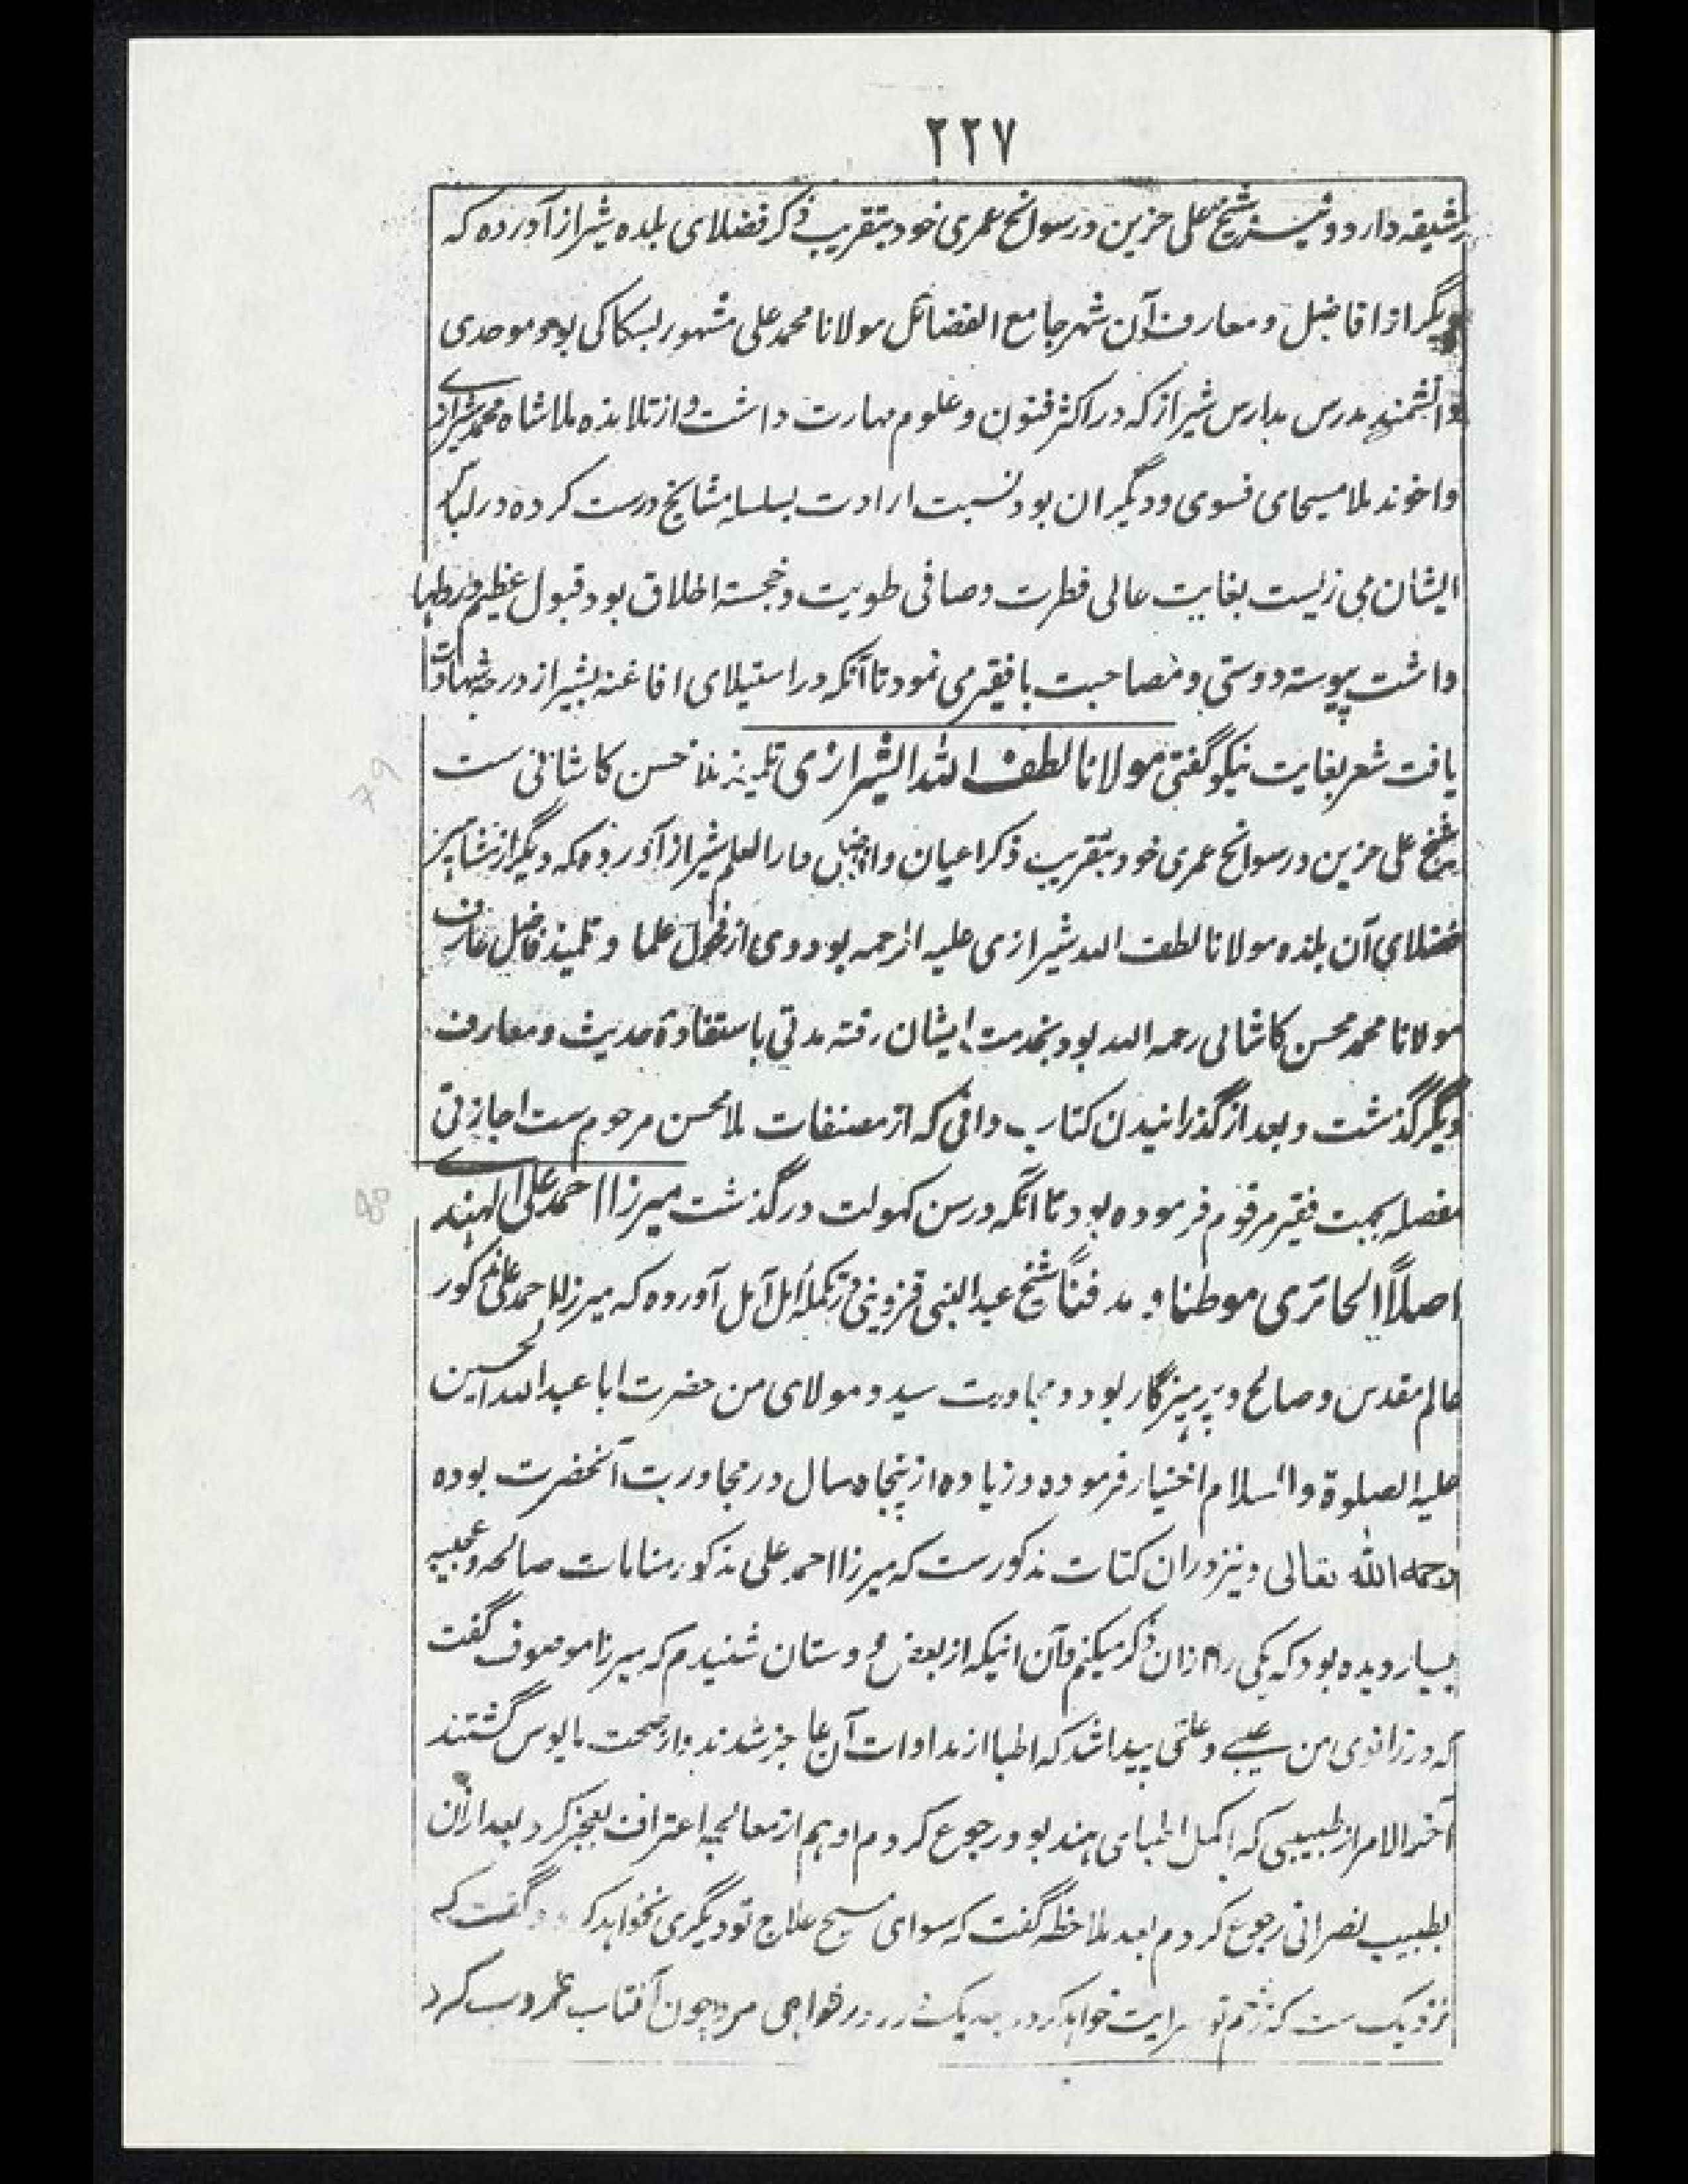 ۲۲۷
رشیقه دارد و نیز شیخ علی حزین در سوانح عمری خود بتقریب ذکر فضلای بلده شیراز آورده که
دیگر از افاضل و معارف آن شهر جامع الفضائل مولانا محمد علی مشهور بسکاکی بود موحدی
دانشمند مدرس مدارس شیراز که در اکثر فنون و علوم مهارت داشت و از تلامذه ملا شاه محمد شیرازی
واخوند ملا مسیحای فسوی و دیگران بود نسبت ارادت بسلسله مشایخ درست کرده در لباس
ایشان می زیست بغایت عالی فطرت و صافی طویت و خجسته اخلاق بود قبول عظیم در دلها
داشت پیوسته دوستی و مصاحبت با فقیر می نمود تا آنکه در استیلای افاغنه بشیراز درجه شهادت
یافت شعر بغایت نیکو گفتی مولانا لطف الله الشیرازی تلمیذ ملا محسن کاشانی ست
شیخ علی حزین در سوانح عمری خود بتقریب ذکر اعیان و افاضل دار العلم شیراز آورده که دیگر از مشاهیر
فضلای آن بلده مولانا لطف الله شیرازی علیه الرحمه بود وی از فحول علما و تلمیذ فاضل عارف
مولانا محمد محسن کاشانی رحمه الله بود بخدمت ایشان رفته مدتی باستفادهٔ حدیث و معارف
دیگر گذشت و بعد از گذرانیدن کتاب وافی که از مصنفات ملا محسن مرحوم ست اجازتی
مفصله بجهت فقیر مرقوم فرموده بود تا آنکه در سن کهولت درگذشت میرزا احمد علی الهندی
اصلاً الحائری موطنا و مدفناً شیخ عبد النبی قزوینی در تکمله امل آمل آورده که میرزا احمد علی مذکور
عالم مقدس و صالح و پرهیزگار بود و مجاورت سید و مولای من حضرت ابا عبد الله الحسین
علیه الصلوة والسلام اختیار فرموده و زیاده از پنجاه سال در مجاورت آنحضرت بوده
رحمه الله تعالی و نیز دران کتاب مذکورست که میرزا احمد علی مذکور منامات صالحه و عجیبه
بسیار دیده بود که یکی را ازان ذکر میکنم و آن اینکه از بعض دوستان شنیدم که میرزا موصوف گفت
که در زانوی من عیبے و علتی پیدا شد که اطبا از مداوات آن عاجز شدند و از صحت مایوس گشتند
آخر الامر از طبیبی که اکمل اطبای هند بود رجوع کردم او هم از معالجه اعتراف بعجز کرد بعد ازان
بطبیب نصرانی رجوع کردم بعد ملاحظه گفت که سوای مسیح علاج تو دیگری نخواهد کرد و گفت که
نزدیک ست که زخم تو سرایت خواهد کرد و بعد یک روز خواهی مرد چون آفتاب غروب کرد
۷۹
۸۰